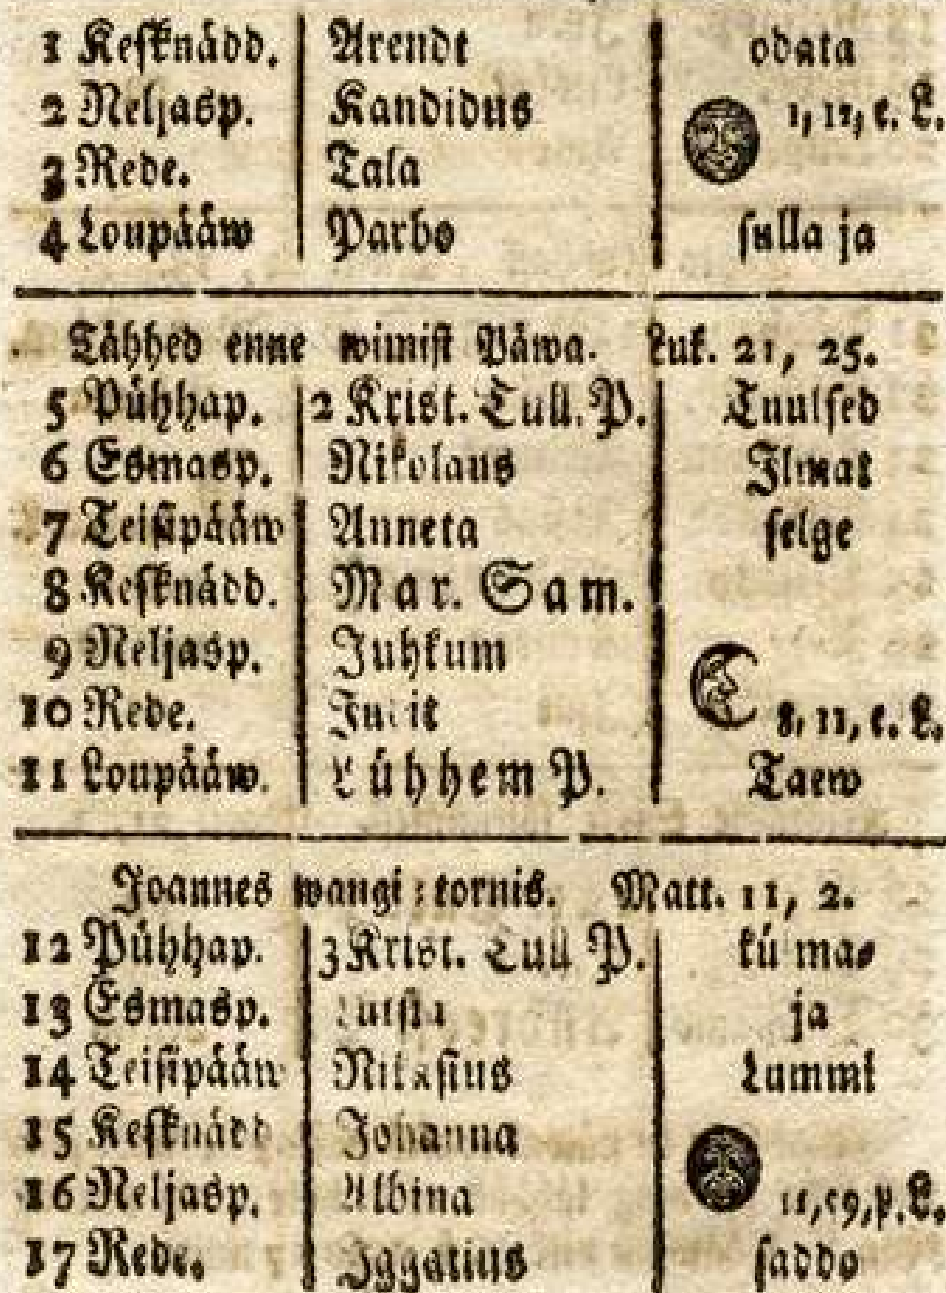 1 Keſknädd. Arendt odata
2 Neljasp. Kandidus 1, 12, e. L.
3 Rede. Tala
4 Loupääw Parbo ſulla ja
Tähhed enne wiimiſt Päwa. Luk. 21, 25.
5 Pühhap. 2 Kriſt. Tull. P. Tuulſed
6 Esmasp. Nikolaus Ilmat
7 Teiſipääw Anneta ſelge
8 Keſknädd. Mar. Sam.
9 Neljasp. Juhkum
10 Rede. 8, 11, e. L.
11 Loupääw. Lühhem P. Taew
Joannes wangi⸗tornis. Matt. 11, 2.
12 Pühhap. 3 Kriſt. Tull P. külmaſ
13 Esmasp. ja
14 Teiſipääw Nikaſius Lummi
15 Keſknädd Johanna
16 Neljasp. Albina 11, 59, p. L.
17 Rede. Iggatius ſaddo